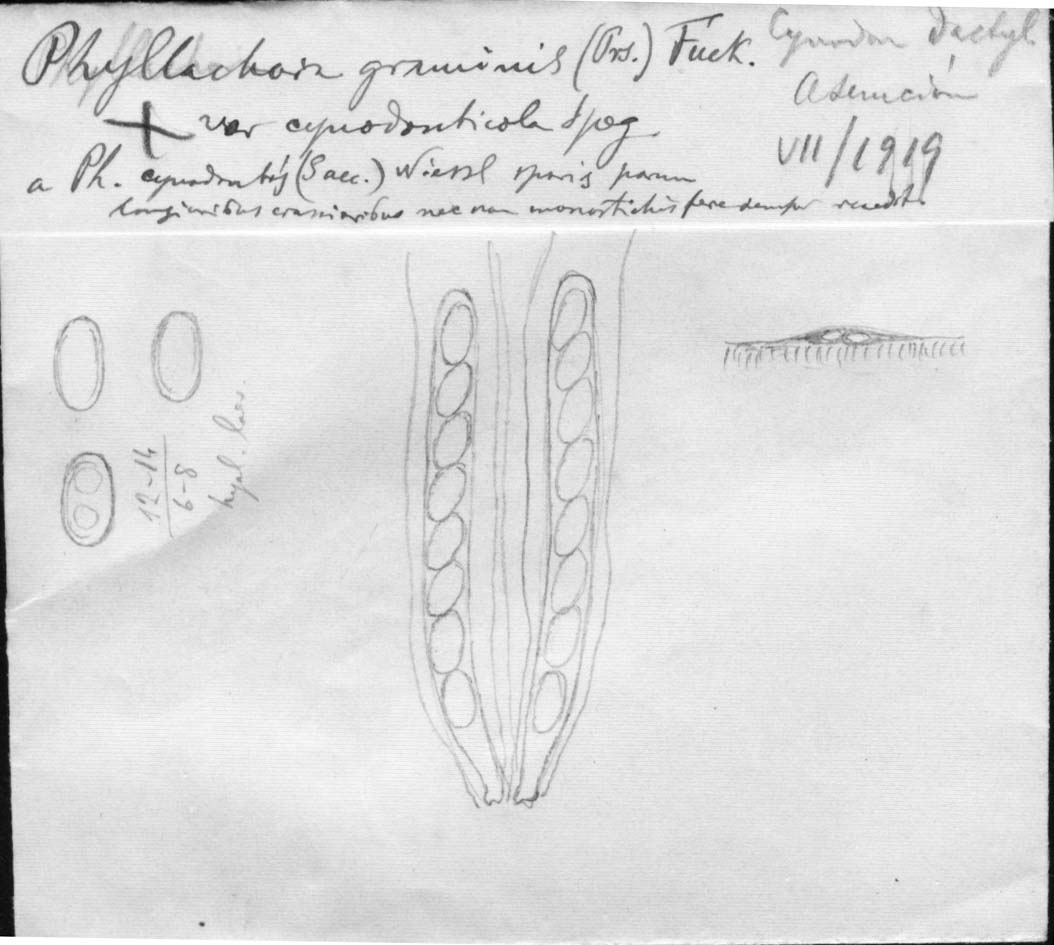 Phyllachora graminis (Prs.) Fuck.
+ var cynodonticola Speg.
a Ph. cynodontis (Sacc.) Niessl sporis parum
longioribus crassioribus nec non monostichis fere semper recedit.
Cynodon Dactyl.
Asunción
VII/1919
12-14
6-8
hyal. laev.